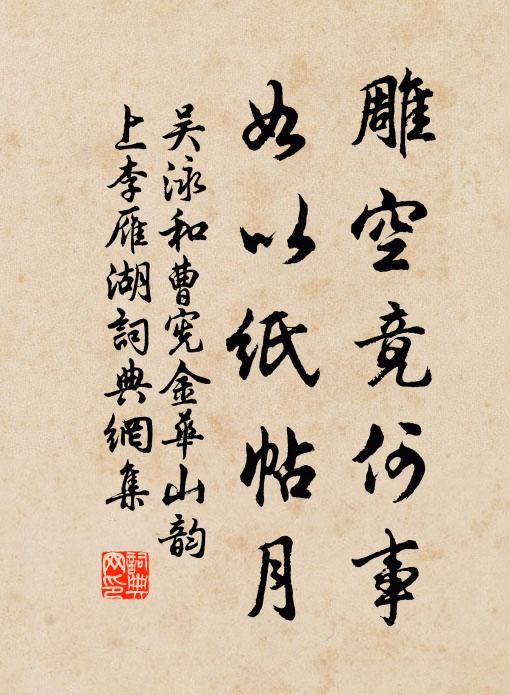 雕空竟何事
如以纸帖月
吴泳和曹宪金华山韵
上李雁湖詞典網集
詞典
网印